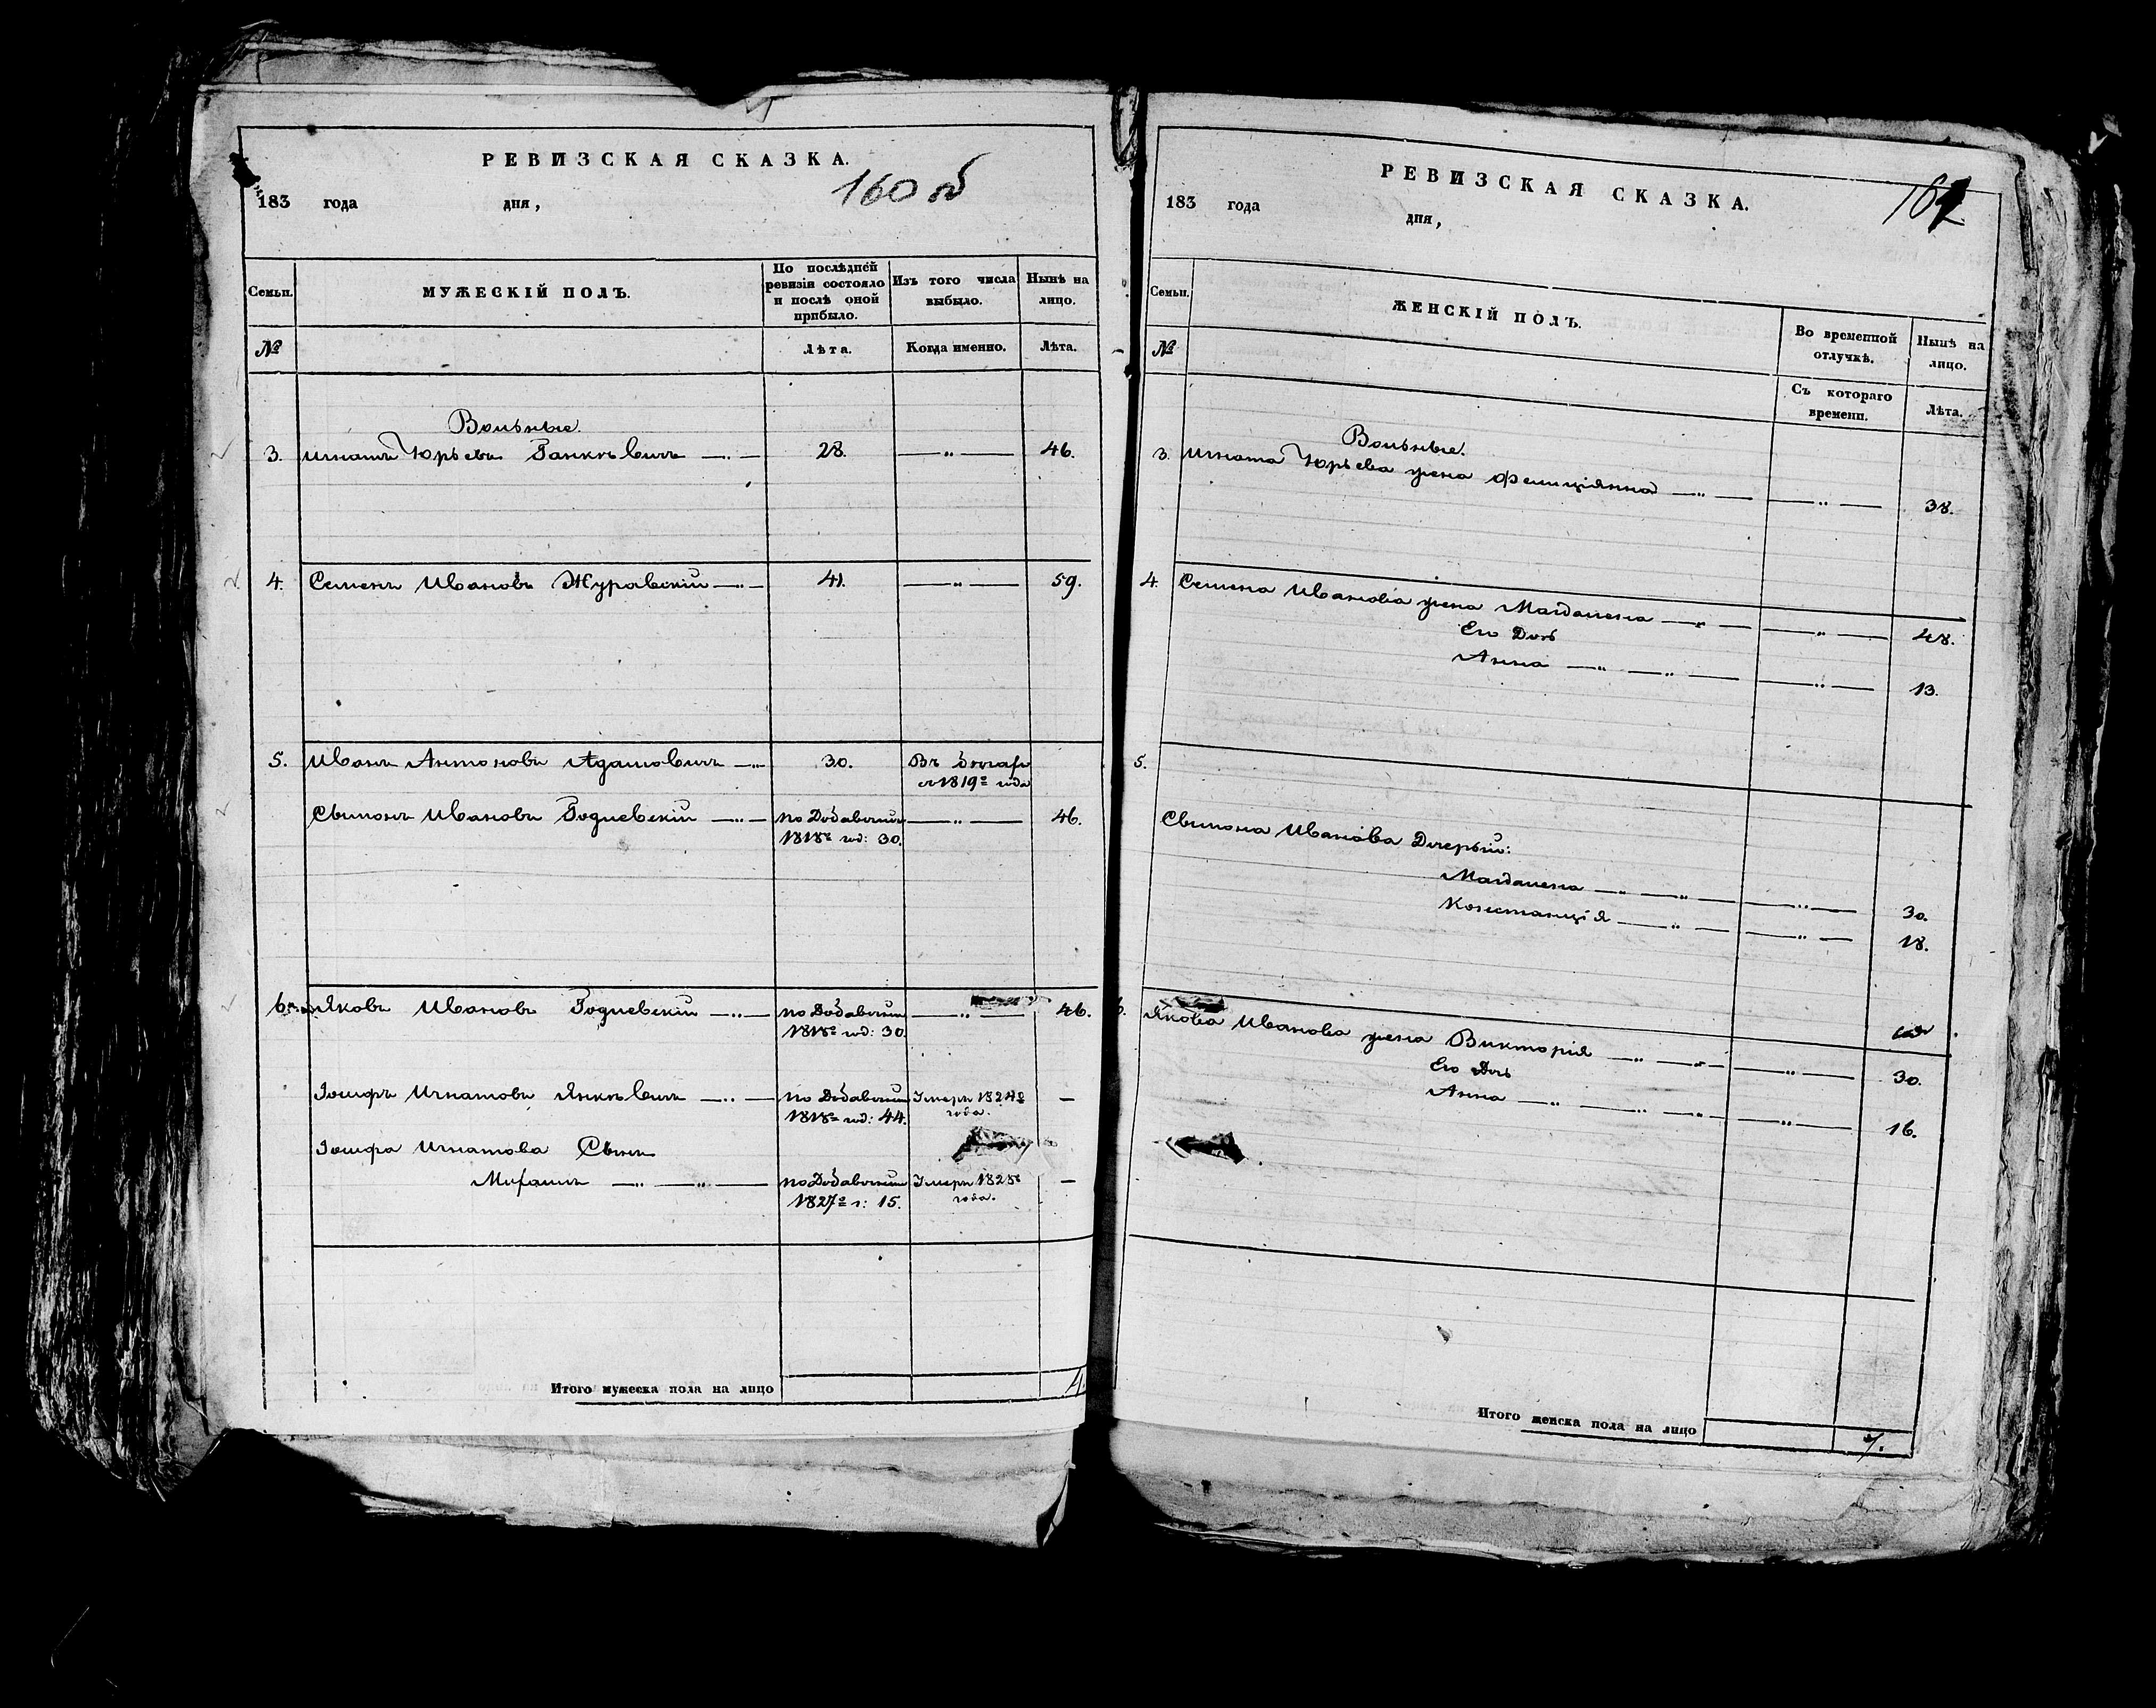 РЕВИЗСКАЯ СКАЗКА.
160 об
183 года дня,
Семьи. МУЖЕСКІЙ ПОЛЪ. По послѣдней ревизіи состояло и послѣ оной прибыло. Изъ того числа выбыло. Нынѣ на лицо.
№ Лѣта. Когда именно. Лѣта.
Вольные.
3. Игнатъ Юрьевъ 28. —„— 46.
4. Семенъ Ивановъ Журавскій —„— 41. —„— 59.
5. Иванъ Антоновъ Адамовичъ —„— 30. Въ
с 1819го года
Ивановъ —„— по —„— 46.
1818го год: 30.
6. Яковъ Ивановъ —„— по —„— 46.
1818го год: 30.
Іосифъ Игнатовъ —„— по Умеръ
1818го год: 44. года. —
Іосифа Игнатова Сынъ
—„— —„— по Умеръ 1828го —
1827го г: 15. года.
Итого мужеска пола на лицо 4.
РЕВИЗСКАЯ СКАЗКА.
183 года дня,
Семьи. ЖЕНСКІЙ ПОЛЪ. Во временной отлучкѣ. Нынѣ на лицо.
№ Съ котораго времени. Лѣта.
Вольные.
3. Игната Юрьева жена Фелиціянна —„— —„— 38.
4. Семена Иванова жена Магдалена —„— —„— 48.
Его Дочь
Анна —„— —„— —„— 13.
5.
Иванова Дочерьи:
Магдалена —„— —„— —„— 30.
Констанція —„— —„— 18.
6. Якова Иванова жена Викторія —„— —„— —„— 30.
Его Дочь
Анна —„— —„— —„— —„— 16.
Итого женска пола на лицо 7.